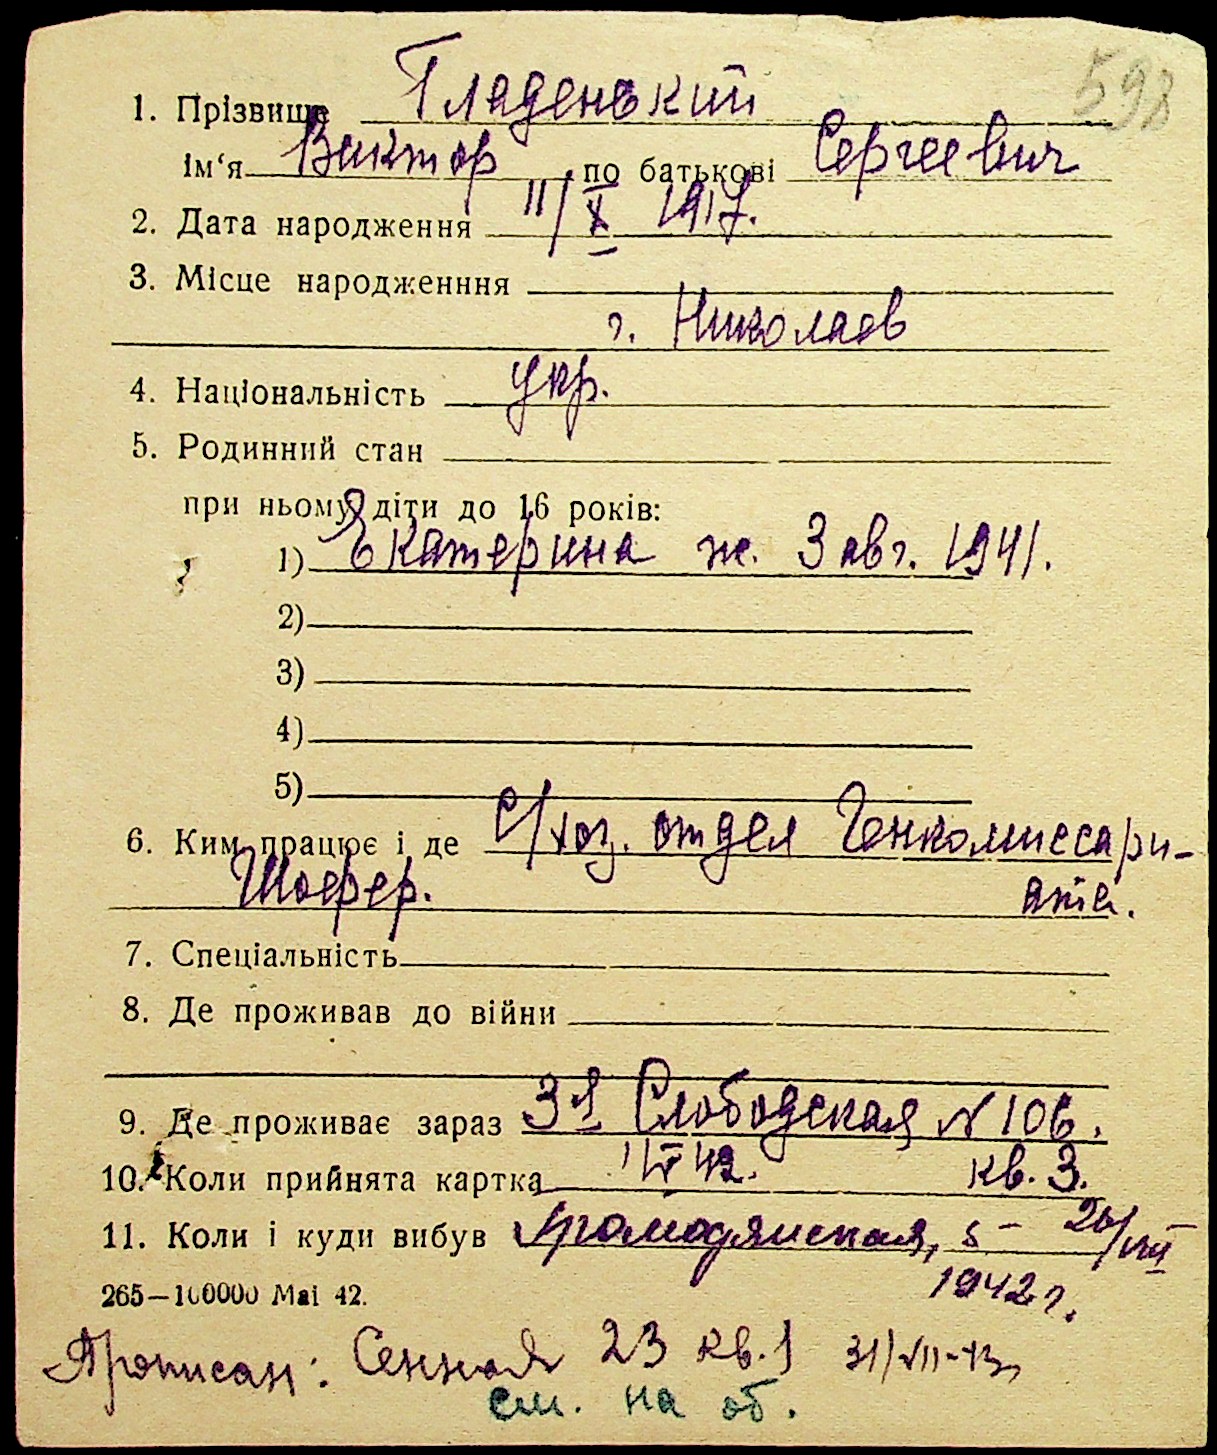 598
1. Прізвище Гладенький
ім‘я Виктор по батькові Сергеевич
2. Дата народження 11/X 1917.
3. Місце народженння
г. Николаев
4. Національність укр.
5. Родинний стан
при ньому діти до 16 років:
1) Екатерина ж. 3 авг. 1941.
2)
3)
4)
5)
6. Ким працює і де С/хоз. отдел Генкомиссари-
Шофер. ата.
7. Спеціальність
8. Де проживав до війни
9. Де проживає зараз 3я Слободская № 106.
10. Коли прийнята картка 42. кв. 3.
11. Коли і куди вибув 5 - 26/VIII
1942 г.
265—100000 Mai 42.
Прописан: Сенная 23 кв. 1 31/VII-43
см. на об.